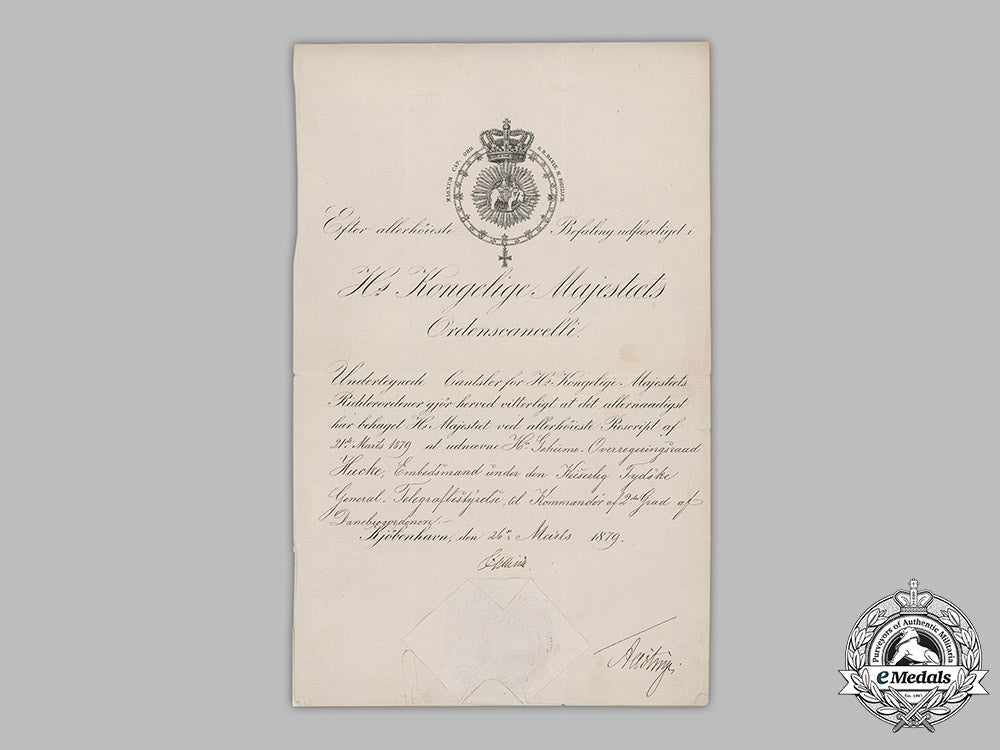 MAGNUM CAP. ORD. S. R. DANIÆ & SIGILLUM
Efter allerhöieste Befaling udfærdiget i
Hs. Kongelige Majestæts
Ordenscancelli.
Undertegnede Cantsler for Hs. Kongelige Majestæts
Ridderordener gjör herved vitterligt, at det allernaadigst
har behaget Hs. Majestæt ved allerhöieste Rescript af
21de Marts 1879 at udnævne Hr. Geheime-Overregeringsraad
Hucke, Embedsmand under den Keiserlig Tydske
General-Telegrafbestyrelse, til Kommandör af 2den Grad af
Danebrogordenen.-
Kjöbenhavn, den 26n. Marts 1879.
Purveyors of Authentic Militaria
eMedals